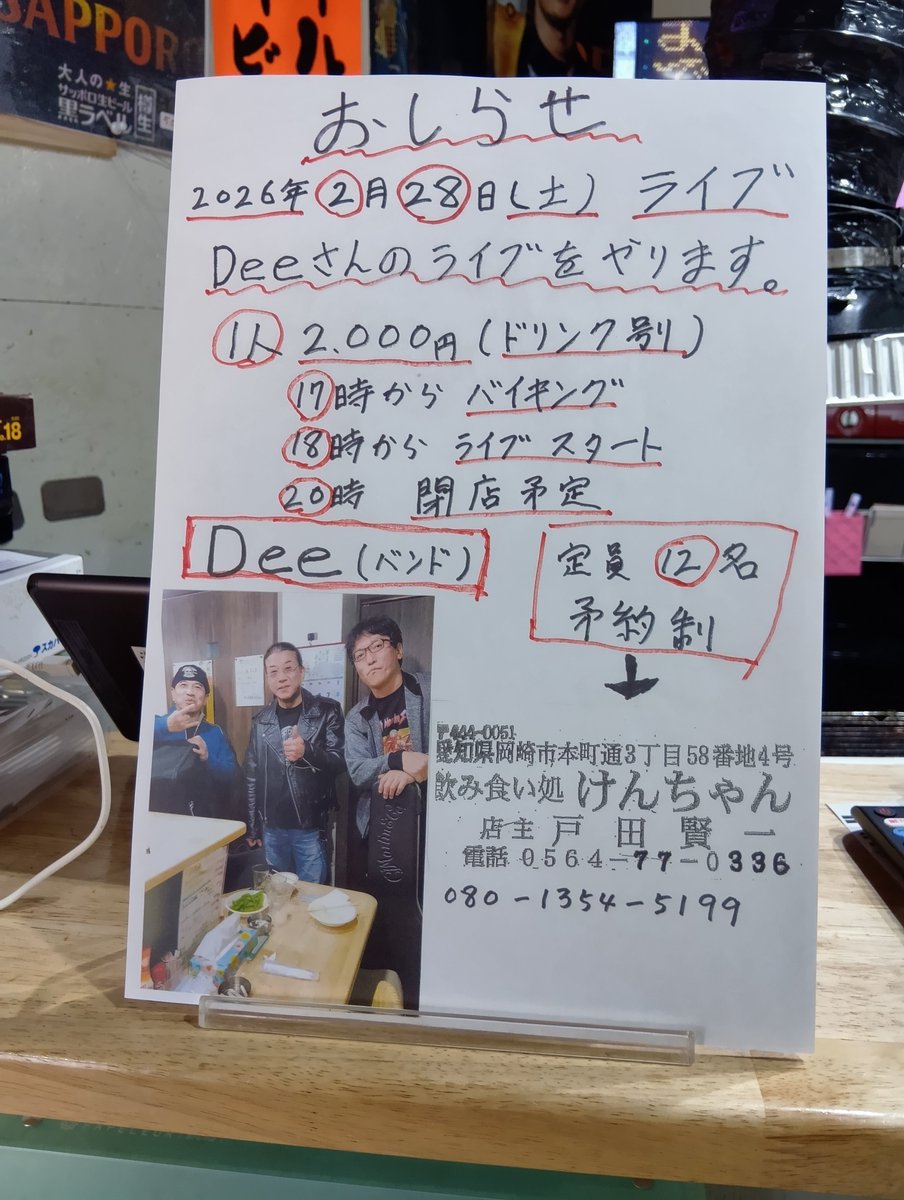 SAPPORO
大人の★生
サッポロ生ビール
黒ラベル
樽生
ビール
おしらせ
2026年 2月 28日(土) ライブ
Deeさんのライブをやります。
1人 2.000円(ドリンク別)
17時から バイキング
18時から ライブスタート
20時 閉店予定
Dee(バンド)
定員 12名
予約制
〒444-0051
愛知県岡崎市本町通3丁目58番地4号
飲み食い処 けんちゃん
店主 戸田賢一
電話 0564-77-0336
080-1354-5199
.18